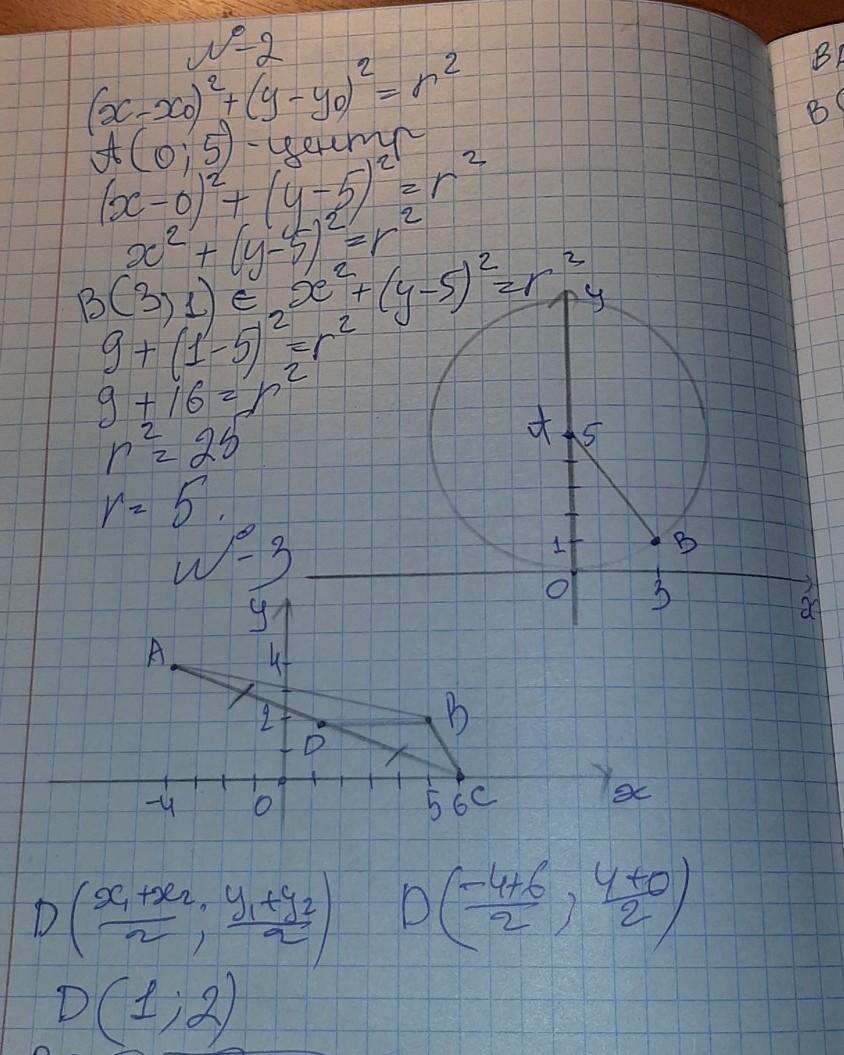 №-2
(x-x₀)² + (y-y₀)² = r²
A(0; 5) - центр
(x-0)² + (y-5)² = r²
x² + (y-5)² = r²
B(3; 1) ∈ x² + (y-5)² = r²
9 + (1-5)² = r²
9 + 16 = r²
r² = 25
r = 5.
y
A 5
1 B
0 3 x
№-3
y
A 4
2 B
D
-4 0 5 6 C x
D(x₁+x₂/2; y₁+y₂/2) D(-4+6/2; 4+0/2)
D(1; 2)